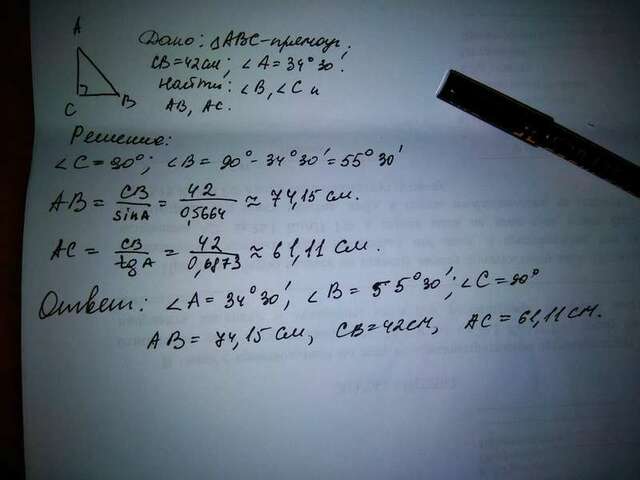 A
C
B
Дано: △ABC-прямоуг;
CB=42см; ∠A=34°30'.
Найти: ∠B, ∠C и
AB, AC.
Решение:
∠C=90°; ∠B=90°-34°30'=55°30'
AB = CB/sinA = 42/0,5664 ≈ 74,15 см.
AC = CB/tgA = 42/0,6873 ≈ 61,11 см.
Ответ: ∠A=34°30'; ∠B=55°30'; ∠C=90°
AB=74,15см, CB=42см, AC=61,11см.